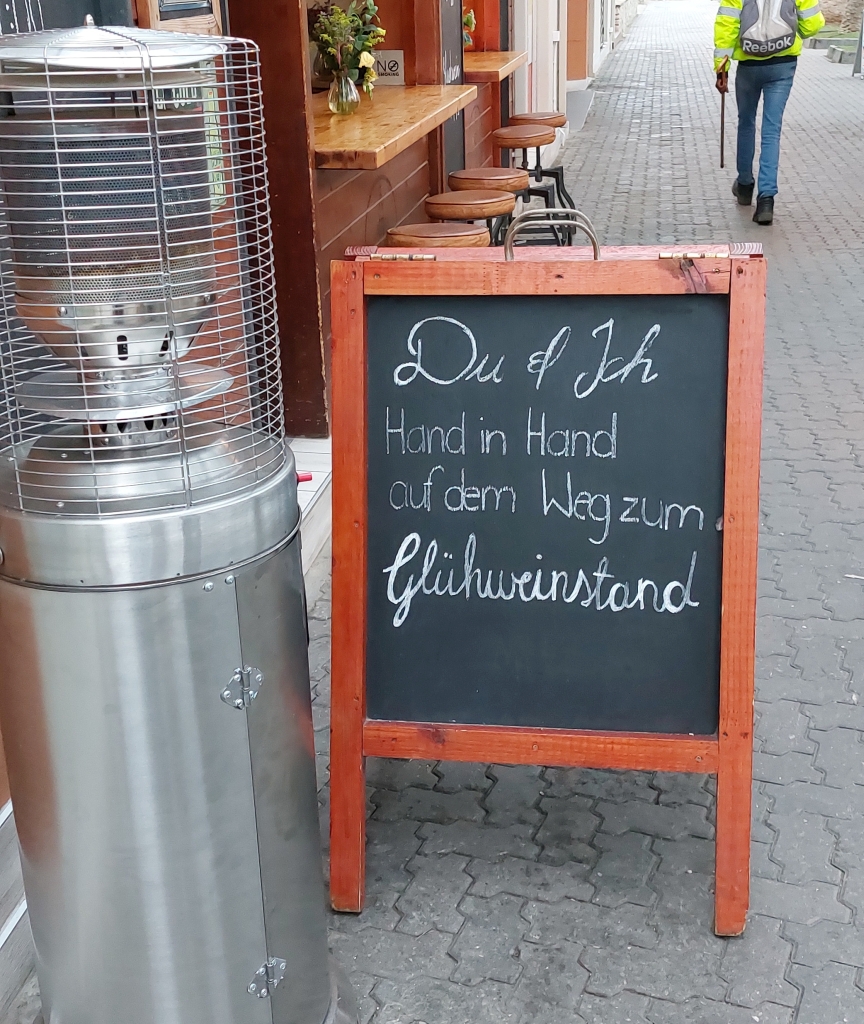 Reebok
NO
SMOKING
Du & Ich
Hand in Hand
auf dem Weg zum
Glühweinstand